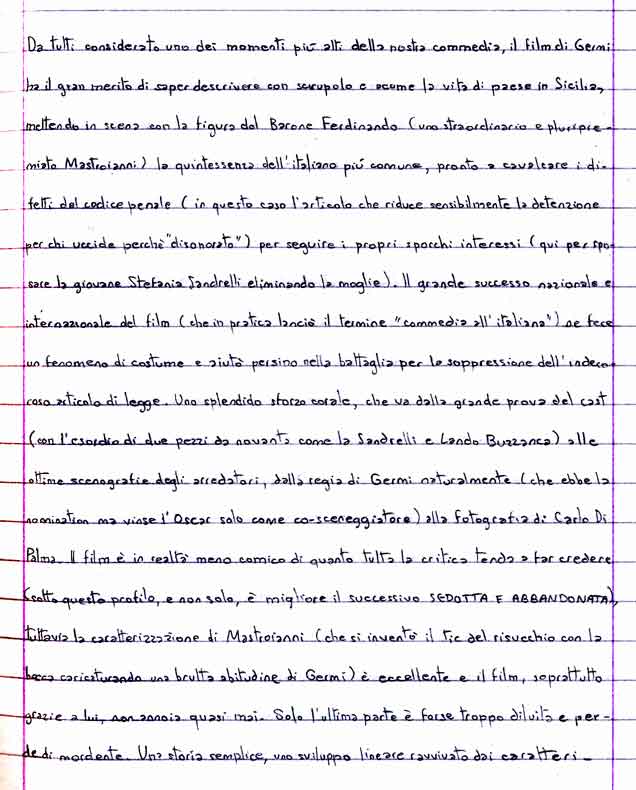 Da tutti considerato uno dei momenti più alti della nostra commedia, il film di Germi
ha il gran merito di saper descrivere con scrupolo e acume la vita di paese in Sicilia,
mettendo in scena con la figura del Barone Ferdinando (uno straordinario e pluripre-
miato Mastroianni) la quintessenza dell'italiano più comune, pronto a cavalcare i di-
fetti del codice penale (in questo caso l'articolo che riduce sensibilmente la detenzione
per chi uccide perchè "disonorato") per seguire i propri sporchi interessi (qui per spo-
sare la giovane Stefania Sandrelli eliminando la moglie). Il grande successo nazionale e
internazionale del film (che in pratica lanciò il termine "commedia all'italiana") ne fece
un fenomeno di costume e aiutò persino nella battaglia per la soppressione dell'indeco-
roso articolo di legge. Uno splendido sforzo corale, che va dalla grande prova del cast
(con l'esordio di due pezzi da novanta come la Sandrelli e Lando Buzzanca) alle
ottime scenografie degli arredatori, dalla regia di Germi naturalmente (che ebbe la
nomination ma vinse l'Oscar solo come co-sceneggiatore) alla fotografia di Carlo Di
Palma. Il film è in realtà meno comico di quanto tutta la critica tenda a far credere
(sotto questo profilo, e non solo, è migliore il successivo SEDOTTA E ABBANDONATA),
tuttavia la caratterizzazione di Mastroianni (che si inventò il tic del risucchio con la
bocca caricaturando una brutta abitudine di Germi) è eccellente e il film, soprattutto
grazie a lui, non annoia quasi mai. Solo l'ultima parte è forse troppo diluita e per-
de di mordente. Una storia semplice, uno sviluppo lineare ravvivato dai caratteri-